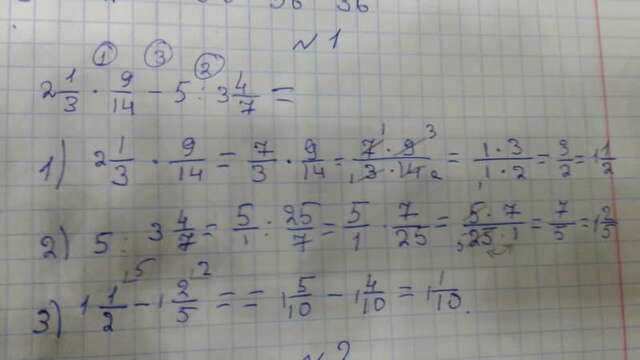 №1
① ③ ②
2 1/3 · 9/14 − 5 : 3 4/7 =
1) 2 1/3 · 9/14 = 7/3 · 9/14 = 7·9/3·14 = 1·3/1·2 = 3/2 = 1 1/2
2) 5 : 3 4/7 = 5/1 : 25/7 = 5/1 · 7/25 = 5·7/25·1 = 7/5 = 1 2/5
3) 1 1/2 − 1 2/5 = = 1 5/10 − 1 4/10 = 1/10.
№2